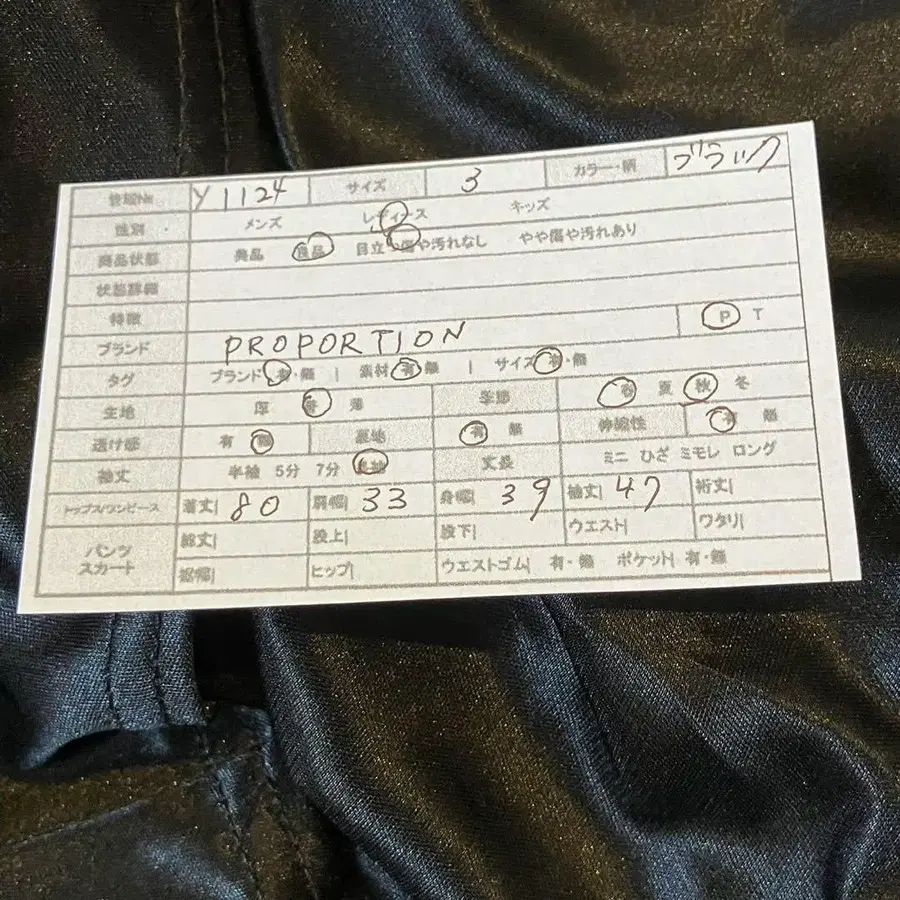 管理№ Y1124 サイズ 3 カラー・柄 ブラック
性別 メンズ レディース キッズ
商品状態 美品 良品 目立つ傷や汚れなし やや傷や汚れあり
状態詳細
特徴 P T
ブランド PROPORTION
タグ ブランド 有・無 | 素材 有・無 | サイズ 有・無
生地 厚 普 薄 季節 春 夏 秋 冬
透け感 有 無 裏地 有 無 伸縮性 有 無
袖丈 半袖 5分 7分 長袖 丈長 ミニ ひざ ミモレ ロング
トップス/ワンピース 着丈| 80 肩幅| 33 身幅| 39 袖丈| 47 裄丈|
パンツ スカート 総丈| 股上| 股下| ウエスト| ワタリ|
裾幅| ヒップ| ウエストゴム| 有・無 ポケット| 有・無